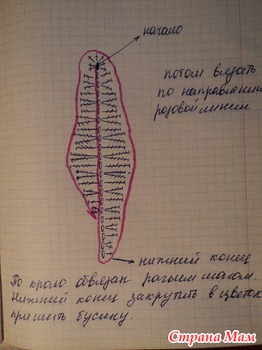 начало
потом вязать
по направлению
розовой линии
нижний конец
По краю обвязан рачьим шагом.
Нижний конец закрутить в цветок
пришить бусину.
Страна Мам